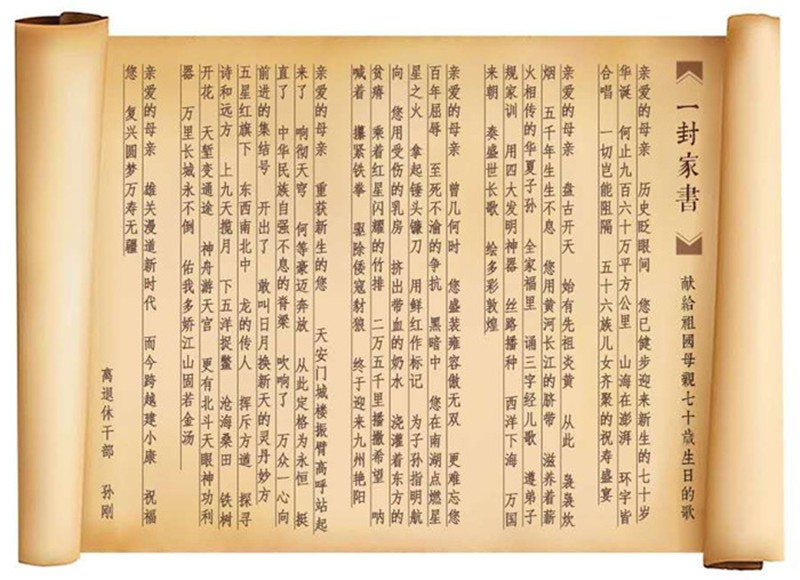 一封家書
献给祖國母親七十歲生日的歌
亲爱的母亲 历史眨眼间 您已健步迎来新生的七十岁
华诞 何止九百六十万平方公里 山海在澎湃 环宇皆
合唱 一切岂能阻隔 五十六族儿女齐聚的祝寿盛宴
亲爱的母亲 盘古开天 始有先祖炎黄 从此 袅袅炊
烟 五千年生生不息 您用黄河长江的脐带 滋养着薪
火相传的华夏子孙 全家福里 诵三字经儿歌 遵弟子
规家训 用四大发明神器 丝路播种 西洋下海 万国
来朝 奏盛世长歌 绘多彩敦煌
亲爱的母亲 曾几何时 您盛装雍容傲无双 更难忘您
百年屈辱 至死不渝的争抗 黑暗中 您在南湖点燃星
星之火 拿起锤头镰刀 用鲜红作标记 为子孙指明航
向 您用受伤的乳房 挤出带血的奶水 浇灌着东方的
贫瘠 乘着红星闪耀的竹排 二万五千里播撒希望 呐
喊着 攥紧铁拳 驱除倭寇豺狼 终于迎来九州艳阳
亲爱的母亲 重获新生的您 天安门城楼振臂高呼站起
来了 响彻天穹 何等豪迈奔放 从此定格为永恒 挺
直了 中华民族自强不息的脊梁 吹响了 万众一心向
前进的集结号 开出了 敢叫日月换新天的灵丹妙方
五星红旗下 东西南北中 龙的传人 挥斥方遒 探寻
诗和远方 上九天揽月 下五洋捉鳖 沧海桑田 铁树
开花 天堑变通途 神舟游天宫 更有北斗天眼神功利
器 万里长城永不倒 佑我多娇江山固若金汤
亲爱的母亲 雄关漫道新时代 而今跨越建小康 祝福
您 复兴圆梦万寿无疆
离退休干部 孙刚